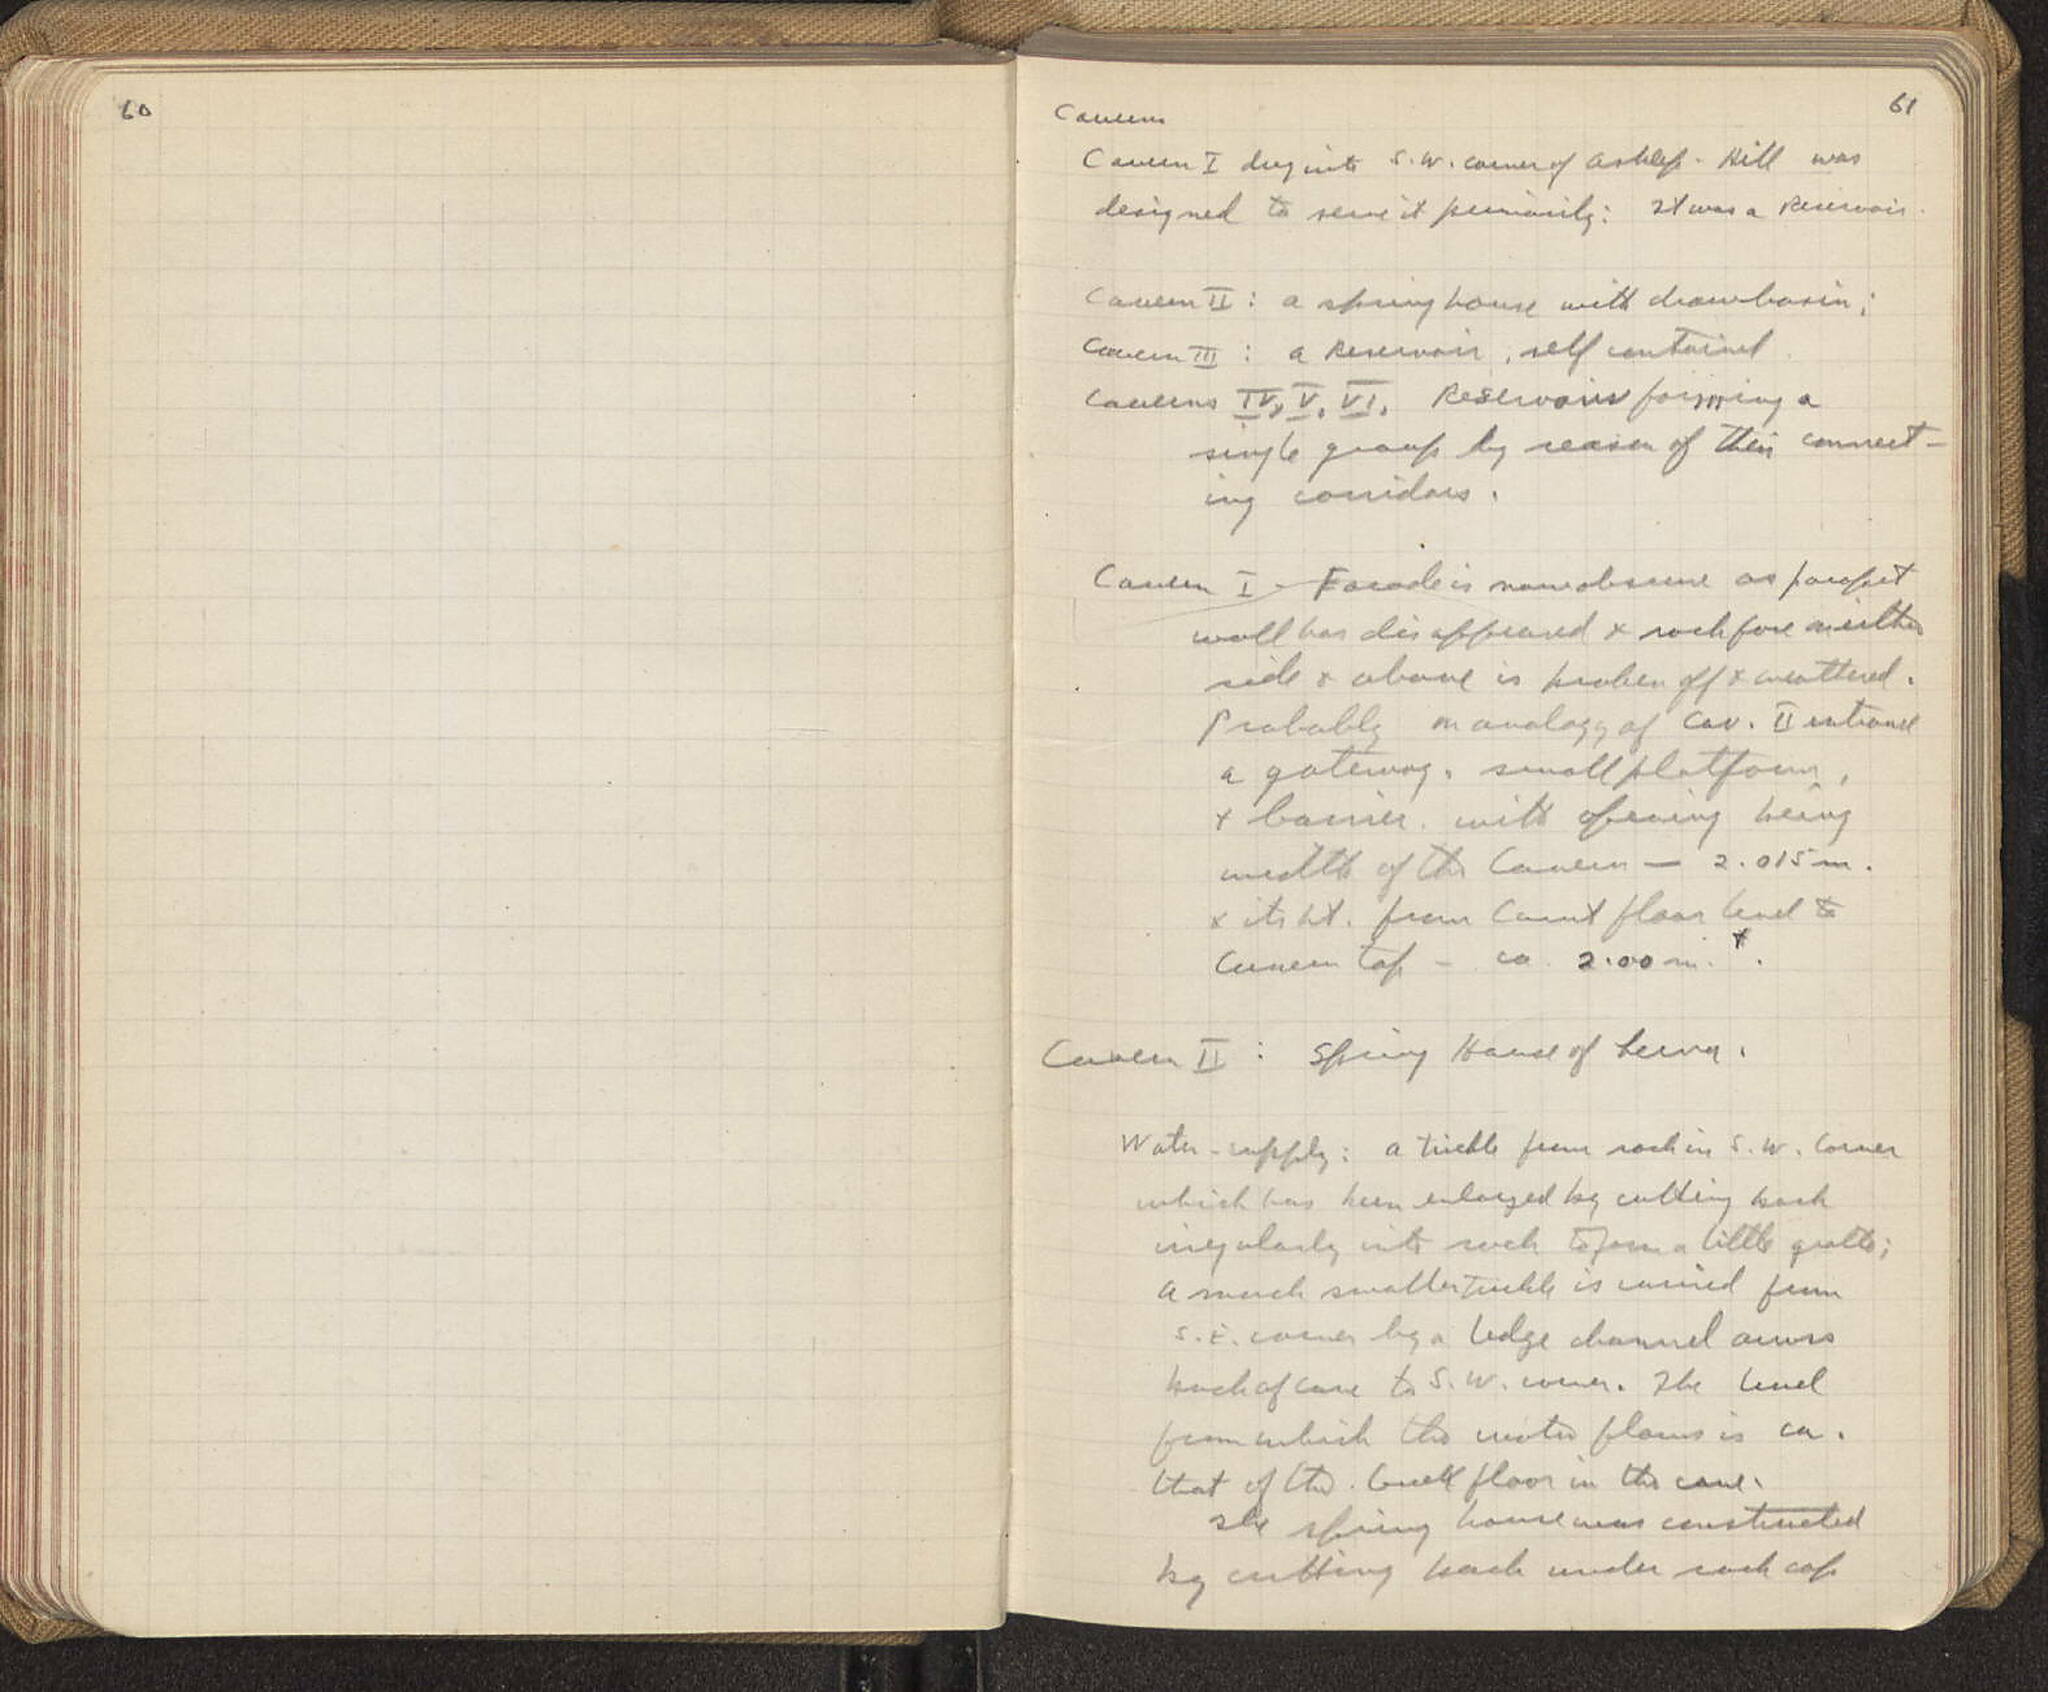 60
61
Cavern
Cavern I dug into S.W. corner of Asklep. Hill was
designed to serve it primarily: It was a Reservoir.
Cavern II: a spring house with drawbasin;
Cavern III: a Reservoir, self contained.
Caverns IV, V, VI. Reservoirs forming a
single group by reason of their connect-
ing corridors.
Cavern I - Facade is now obscure as parapet
wall has disappeared & rock face on either
side & above is broken off & weathered.
Probably on analogy of Cav. II entrance
a gateway, small platform,
& barrier. with opening being
width of the Cavern — 2.015 m.
& its ht. from Court floor level to
Cavern top - ca. 2.00 m. +.
Cavern II: Spring House of Lerna.
Water-supply: a trickle from rock in S.W. corner
which has been enlarged by cutting back
irregularly into rock to form a little grotto;
a much smaller trickle is carried from
S.E. corner by a ledge channel across
back of cave to S.W. corner. The level
from which the water flows is ca.
that of the floor in the cave.
The spring house was constructed
by cutting back under rock cap